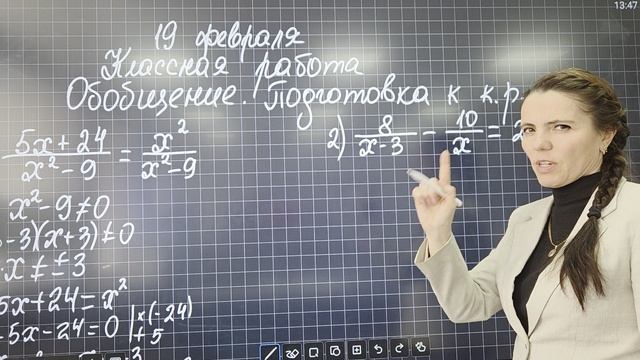 13:47
19 февраля
Классная работа
Обобщение. Подготовка к к.р.
(5x + 24)/(x² - 9) = x²/(x² - 9)
x² - 9 ≠ 0
-3)(x + 3) ≠ 0
x ≠ ± 3
5x + 24 = x²
-5x - 24 = 0 | × (-24)
+ 5
2) 8/(x - 3) - 10/x = 2